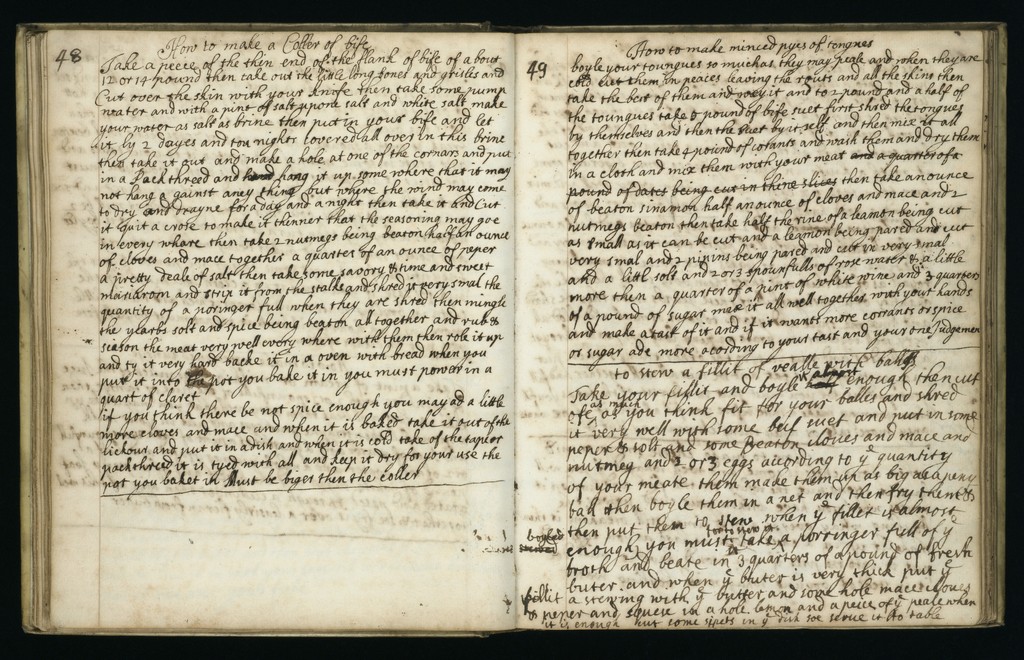 48
How to make a Coller of bife
Take a peece of the then end of the flank of bife of about
12 or 14 pound then take out the little long bones and grisles and
Cut over the skin with your knife then take some pump
water and with a pint of salt upone salt and white salt make
your water as salt as brine then put in your bife and let
it ly 2 dayes and tou nights Covered all over in this brine
then take it out and make a hole at one of the cornars and put
in a Packthreed and hang it up some where that it may
not hang against aney thing but where the wind may come
to dry and drayne for a day and a night then take it and Cut
it quit a crose to make it thinner that the seasoning may goe
in every whare then take 2 nutmegs being beaton half an ounce
of cloves and mace together a quarter of an ounce of peper
a pretty deale of salt then take some savory & time and sweet
mariarom and strip it from the stalks and shred it very smal the
quantity of a poringer full when they are shred then mingle
the yearbs solt and spice being beaton all together and rub &
season the meat very well every where with them then role it up
and ty it very hard backe it in a oven with bread when you
put it into the pot you bake it in you must power in a
quart of claret
if you think there be not spice enough you may ad a little
more cloves and mace and when it is baked take it out of the
lickour and put it in a dish and when it is cold take of the tape or
packthreed it is tyed with all and keep it dry for your use the
pot you baket in Must be biger then the coller
49
How to make minced pyes of tongues
boyle your toungues so much at they may peale and when they are
cold cut them in peaces leaving the routs and all the skins then
take the best of them and wey it and to 2 pound and a half of
the toungues take pound of bife suet first shred the tongues
by themselves and then the suet by it self and then mix it all
together then take 4 pound of corants and wash them and dry them
in a cloth and mix them with your meat and a quarter of a
pound of dates being cut in thine slices then take an ounce
of beaton sinamon half anounce of cloves and mace and 2
nutmegs beaton then take half the rine of a leamon being cut
as small as it can be cut and a leamon being pared and cut
very smal and 2 pipins being pared and cut in very smal
and a littl solt and 2 or 3 spounfulls of rose water & a little
more then a quarter of a pint of white wine and 3 quarters
of a pound of sugar mix it all well together with your hands
and make a tast of it and if it wants more corrants or spice
or sugar ade more acording to your tast and your one Judgemen
to stew a fillit of vealle with balls
Take your fillit and boyle it almost enough then cut
ofe as much as you think fit for your balles and shred
it very well with some beif suet and put in some
peper & solt and some beaton cloves and mace and
nutmeg and 2 or 3 eggs acording to ye quantity
of your meate them make them up as big as a peny
ball then boyle them in a net and then fry them &
then put them to stew when ye fillet is almost
boyled
enough you must take a porringer full of ye
broth and beate in 3 quarters of a pound of fresh
buter and when ye buter is very thick put ye
fillit a stewing with ye butter and some hole mace cloves
& peper and squese in a hole lemon and a peice of ye peale when
it is enough cut some sipets in ye dish soe serve it to table